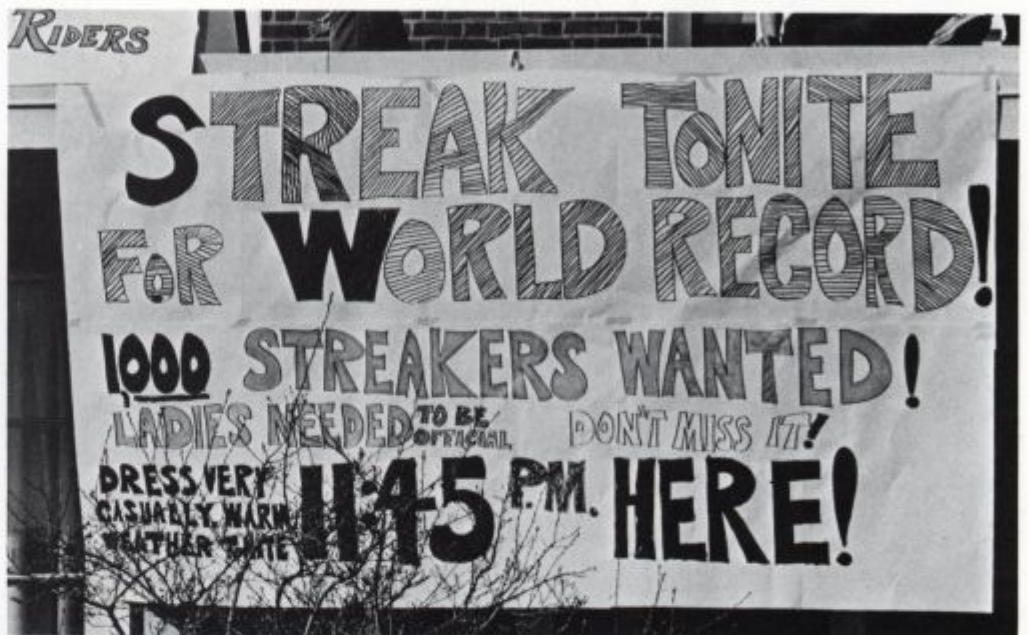 RIDERS
STREAK TONITE
FOR WORLD RECORD!
1,000 STREAKERS WANTED!
LADIES NEEDED TO BE OFFICIAL DON'T MISS IT!
DRESS VERY
CASUALLY, WARM
WEATHER TONITE
11:45 P.M. HERE!